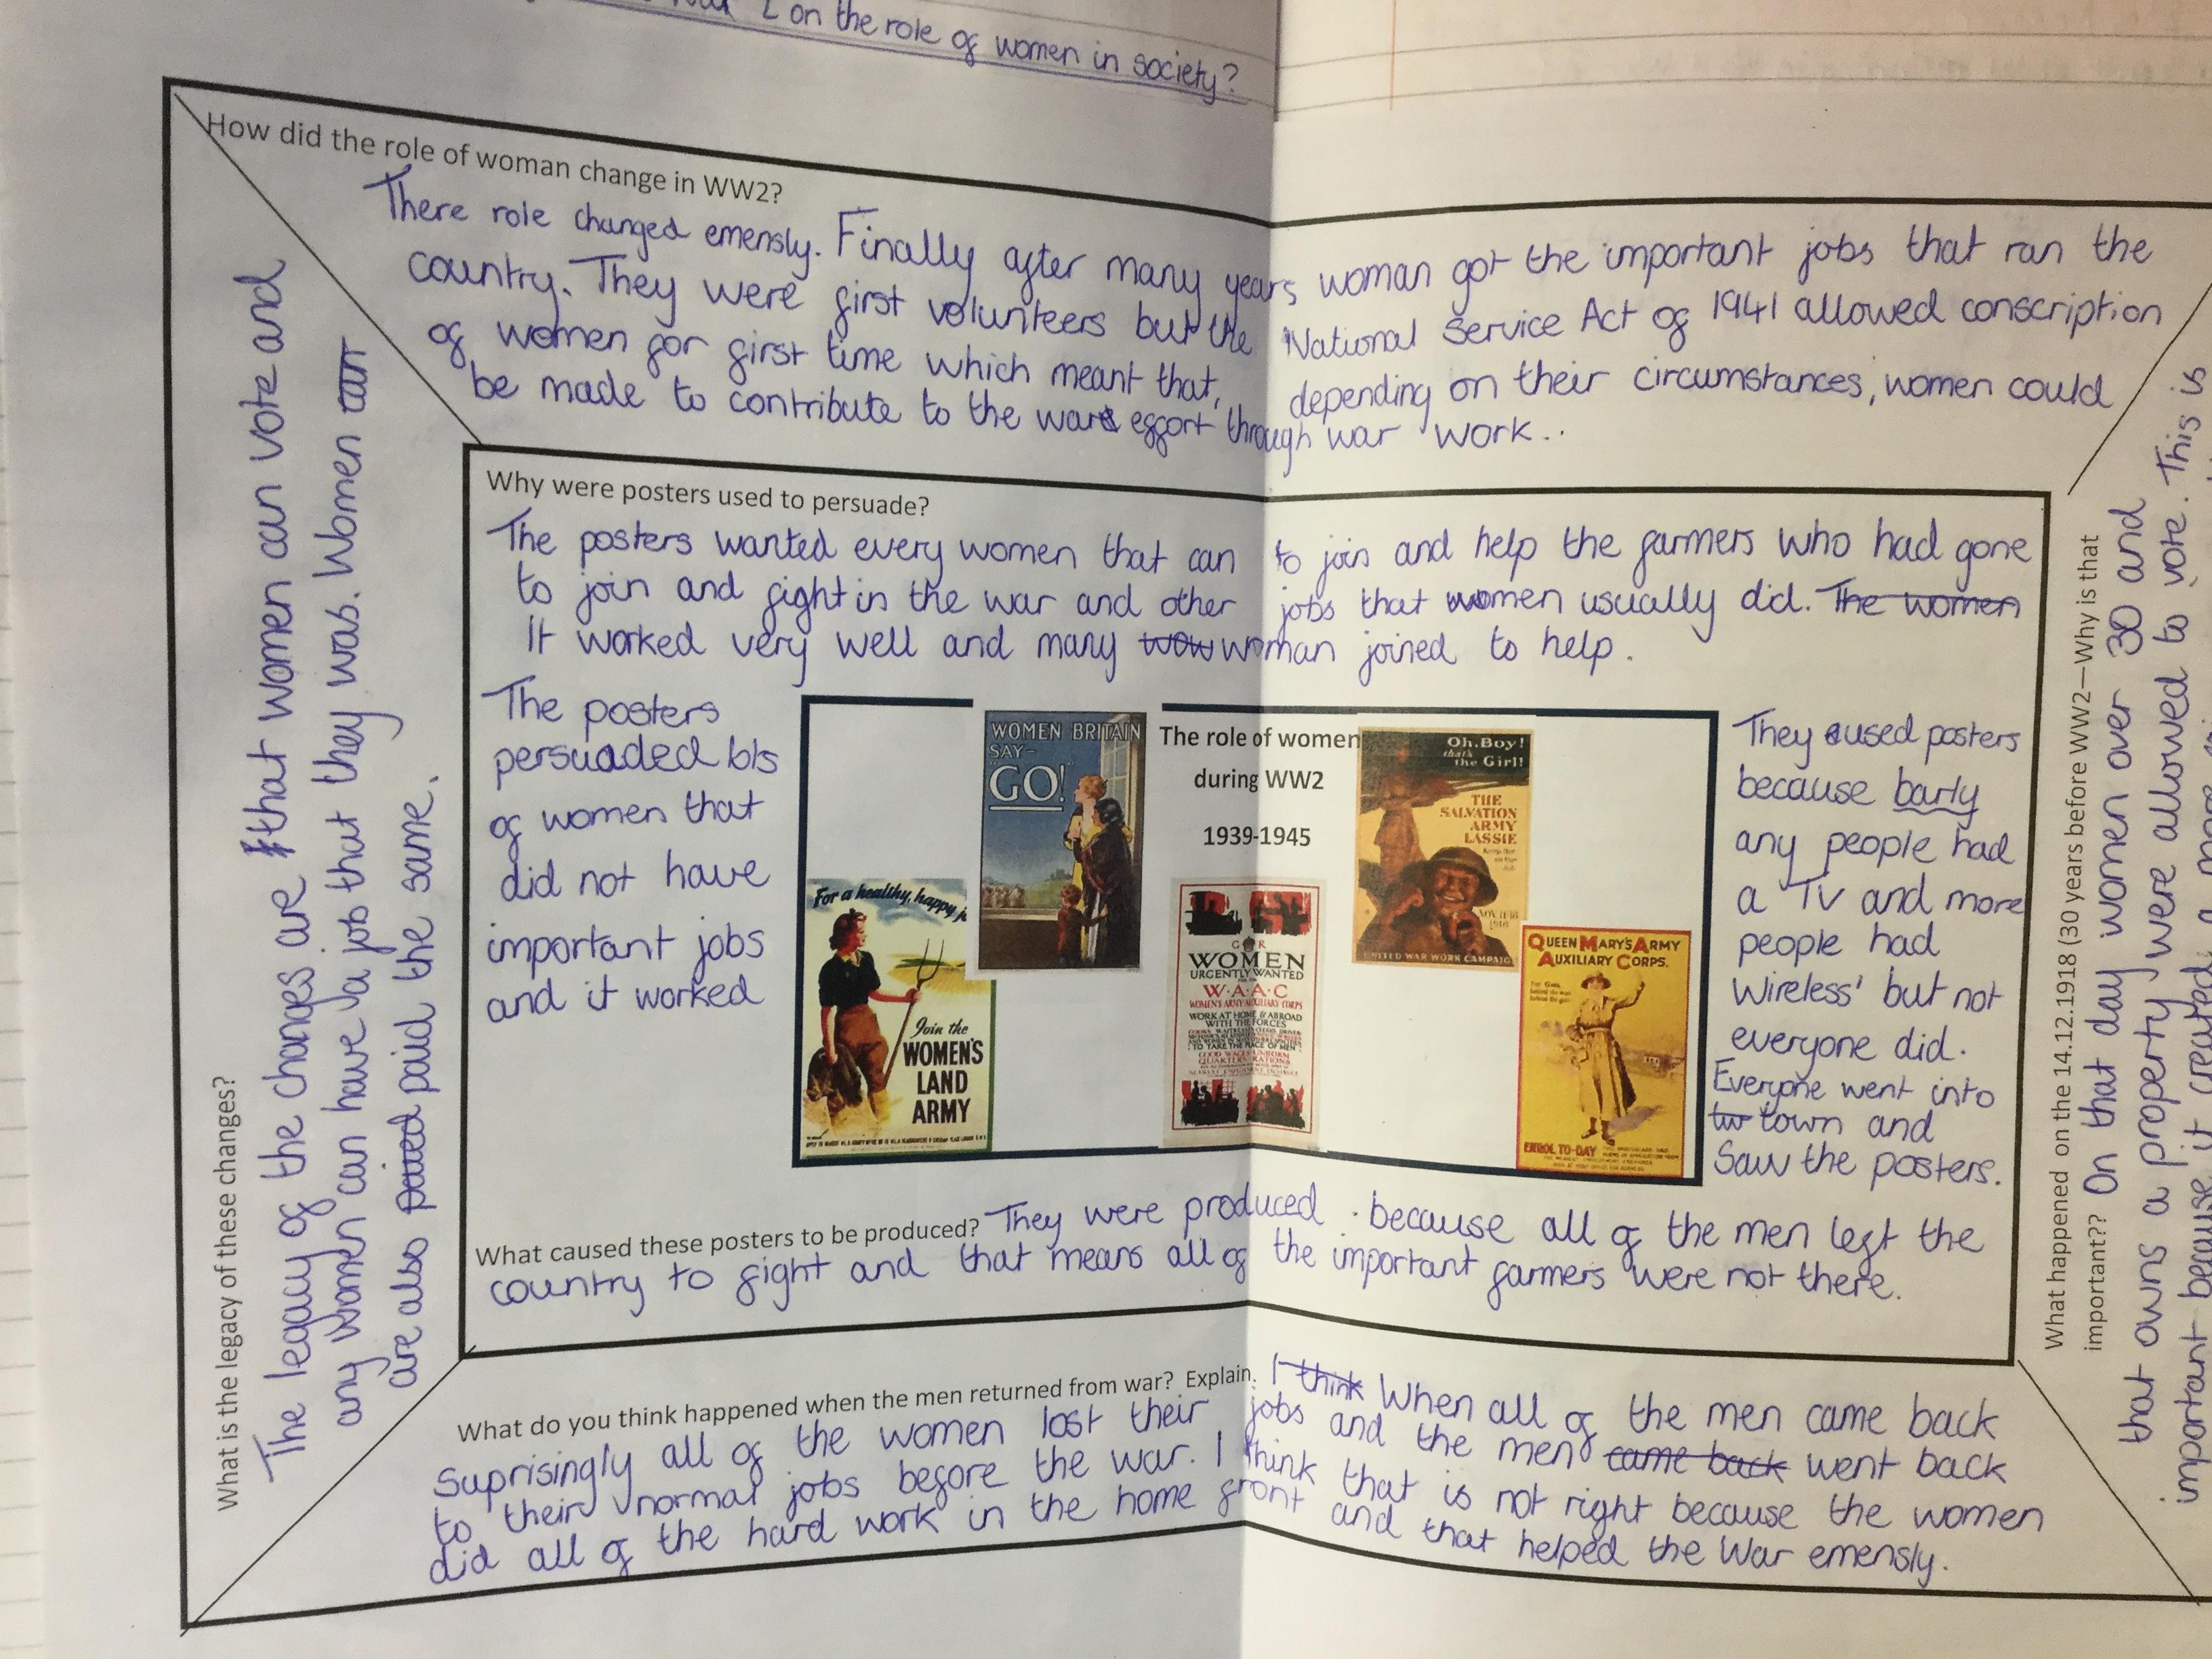 on the role of women in society?
How did the role of woman change in WW2?
There role changed emensly. Finally after many years woman got the important jobs that ran the
country. They were first volunteers but the National Service Act of 1941 allowed conscription
of women for first time which meant that, depending on their circumstances, women could
be made to contribute to the war effort through war work..
Why were posters used to persuade?
The posters wanted every women that can to join and help the farmers who had gone
to join and fight in the war and other jobs that women usually did. The women
it worked very well and many wow woman joined to help.
The posters
persuaded lots
of women that
did not have
important jobs
and it worked
WOMEN BRITAIN
SAY-
"GO!
The role of women
during WW2
1939-1945
Oh, Boy!
that's
the Girl!
THE
SALVATION
ARMY
LASSIE
NOV 11-18
1918
UNITED WAR WORK CAMPAIGN
For a healthy, happy j
Join the
WOMEN'S
LAND
ARMY
G R
WOMEN
URGENTLY WANTED
W·A·A·C
WOMEN'S ARMY AUXILIARY CORPS
WORK AT HOME & ABROAD
WITH THE FORCES
TO TAKE THE PLACE OF MEN
GOOD WAGES UNIFORM
QUARTERS RATIONS
QUEEN MARY'S ARMY
AUXILIARY CORPS.
ENROL TO-DAY
They used posters
because barly
any people had
a TV and more
people had
Wireless' but not
everyone did.
Everyone went into
tw town and
Saw the posters.
What caused these posters to be produced? They were produced because all of the men left the
country to fight and that means all of the important farmers were not there.
What do you think happened when the men returned from war? Explain. I think When all of the men came back
Suprisingly all of the women lost their jobs and the men came back went back
to their normal jobs before the war. I think that is not right because the women
did all of the hard work in the home front and that helped the War emensly.
What is the legacy of these changes?
The legacy of the changes are that women can vote and
any women can have a job that they was. Women can
are also paid the same.
What happened on the 14.12.1918 (30 years before WW2—Why is that
important?? On that day women over 30 and
that owns a property were allowed to vote. This is
important because it created a more